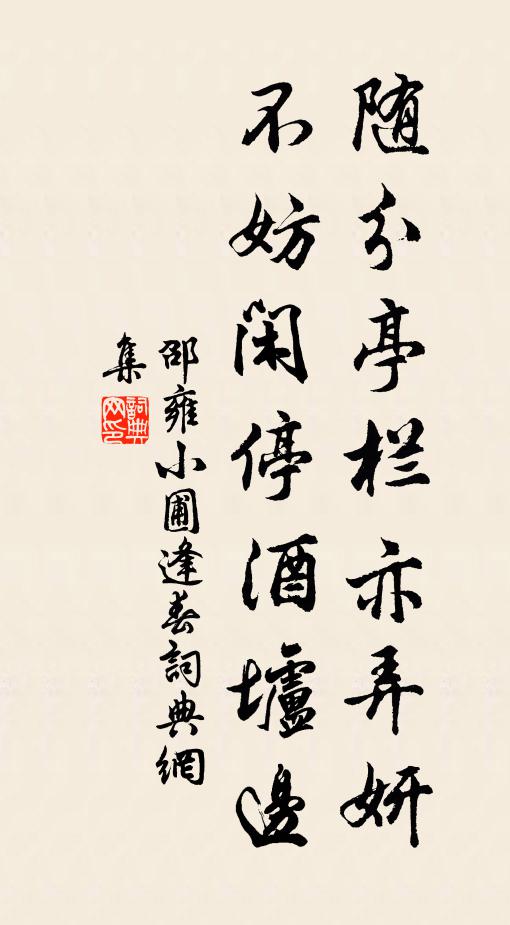 随分亭栏亦弄妍
不妨闲停酒壚邊
邵雍小圃逢春詞典網
集
詞典网印